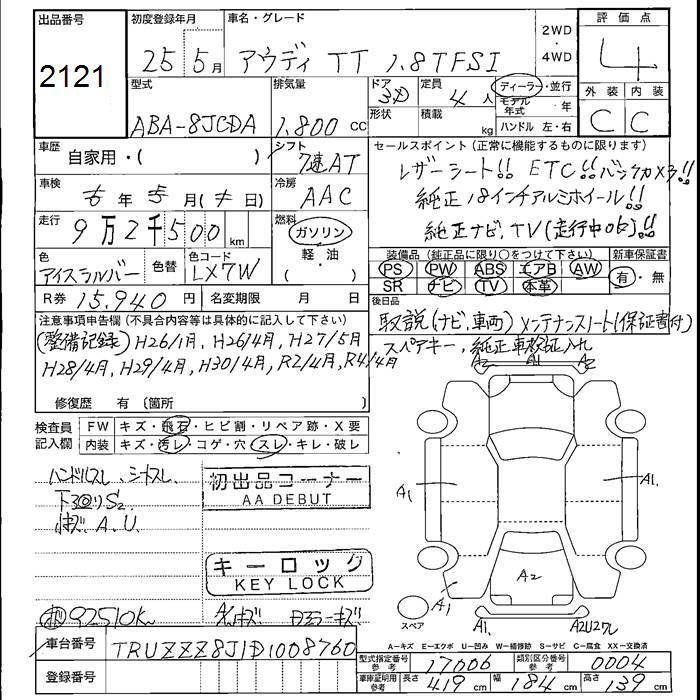 出品番号 初度登録年月 車名・グレード 2WD・4WD 評価点
2121 25 5月 アウディ TT 1.8TFSI 4
型式 排気量 ドア 3D 定員 4人 ディーラー・並行 外装 内装
ABA-8JCDA 1.800 cc 形状 積載 kg モデル年式 年 C C
ハンドル 左・右
車歴 自家用・( ) シフト 7速AT セールスポイント (正常に機能するものに限ります)
レザーシート!! ETC!! バックカメラ!!
車検 年 月 ( 日) 冷房 AAC 純正18インチアルミホイール!!
走行 9万2千500 km 燃料 ガソリン・軽・油 ( ) 純正ナビ、TV(走行中OK)!!
装備品 (純正品に限り○をつけて下さい) 新車保証書
色 アイスシルバー 色替 色コード LX7W PS PW ABS エアB AW 有・無
SR ナビ TV 本革
R券 15.940 円 名変期限 月 日 後日品
注意事項申告欄 (不具合内容等は具体的に記入して下さい) 取説(ナビ、車両) メンテナンスノート(保証書付)
(整備記録) H26/1月, H26/4月, H27/5月 スペアキー、純正車検証入れ
H28/4月, H29/4月, H30/4月, R2/4月, R4/4月
修復歴 有 (箇所 )
検査員記入欄 FW キズ・飛石・ヒビ割・リペア跡・X要
内装 キズ・汚レ・コゲ・穴・スレ・キレ・破レ
ハンドルスレ、シートスレ 初出品コーナー
AA DEBUT
下回りS2
小キズ A、U.
キーロック
KEY LOCK
92510K
A2 A1 A2
A1 A1
A2
A1
スペア A1 A2U2
A-キズ E-エクボ U-凹み W-補修跡 S-サビ C-腐食 XX-交換済
車台番号 TRUZZZ8J1D1008760
型式指定番号 参考 17006 類別区分番号 参考 0004
登録番号
車庫証明用 参考 長さ 419 cm 幅 184 cm 高さ 139 cm